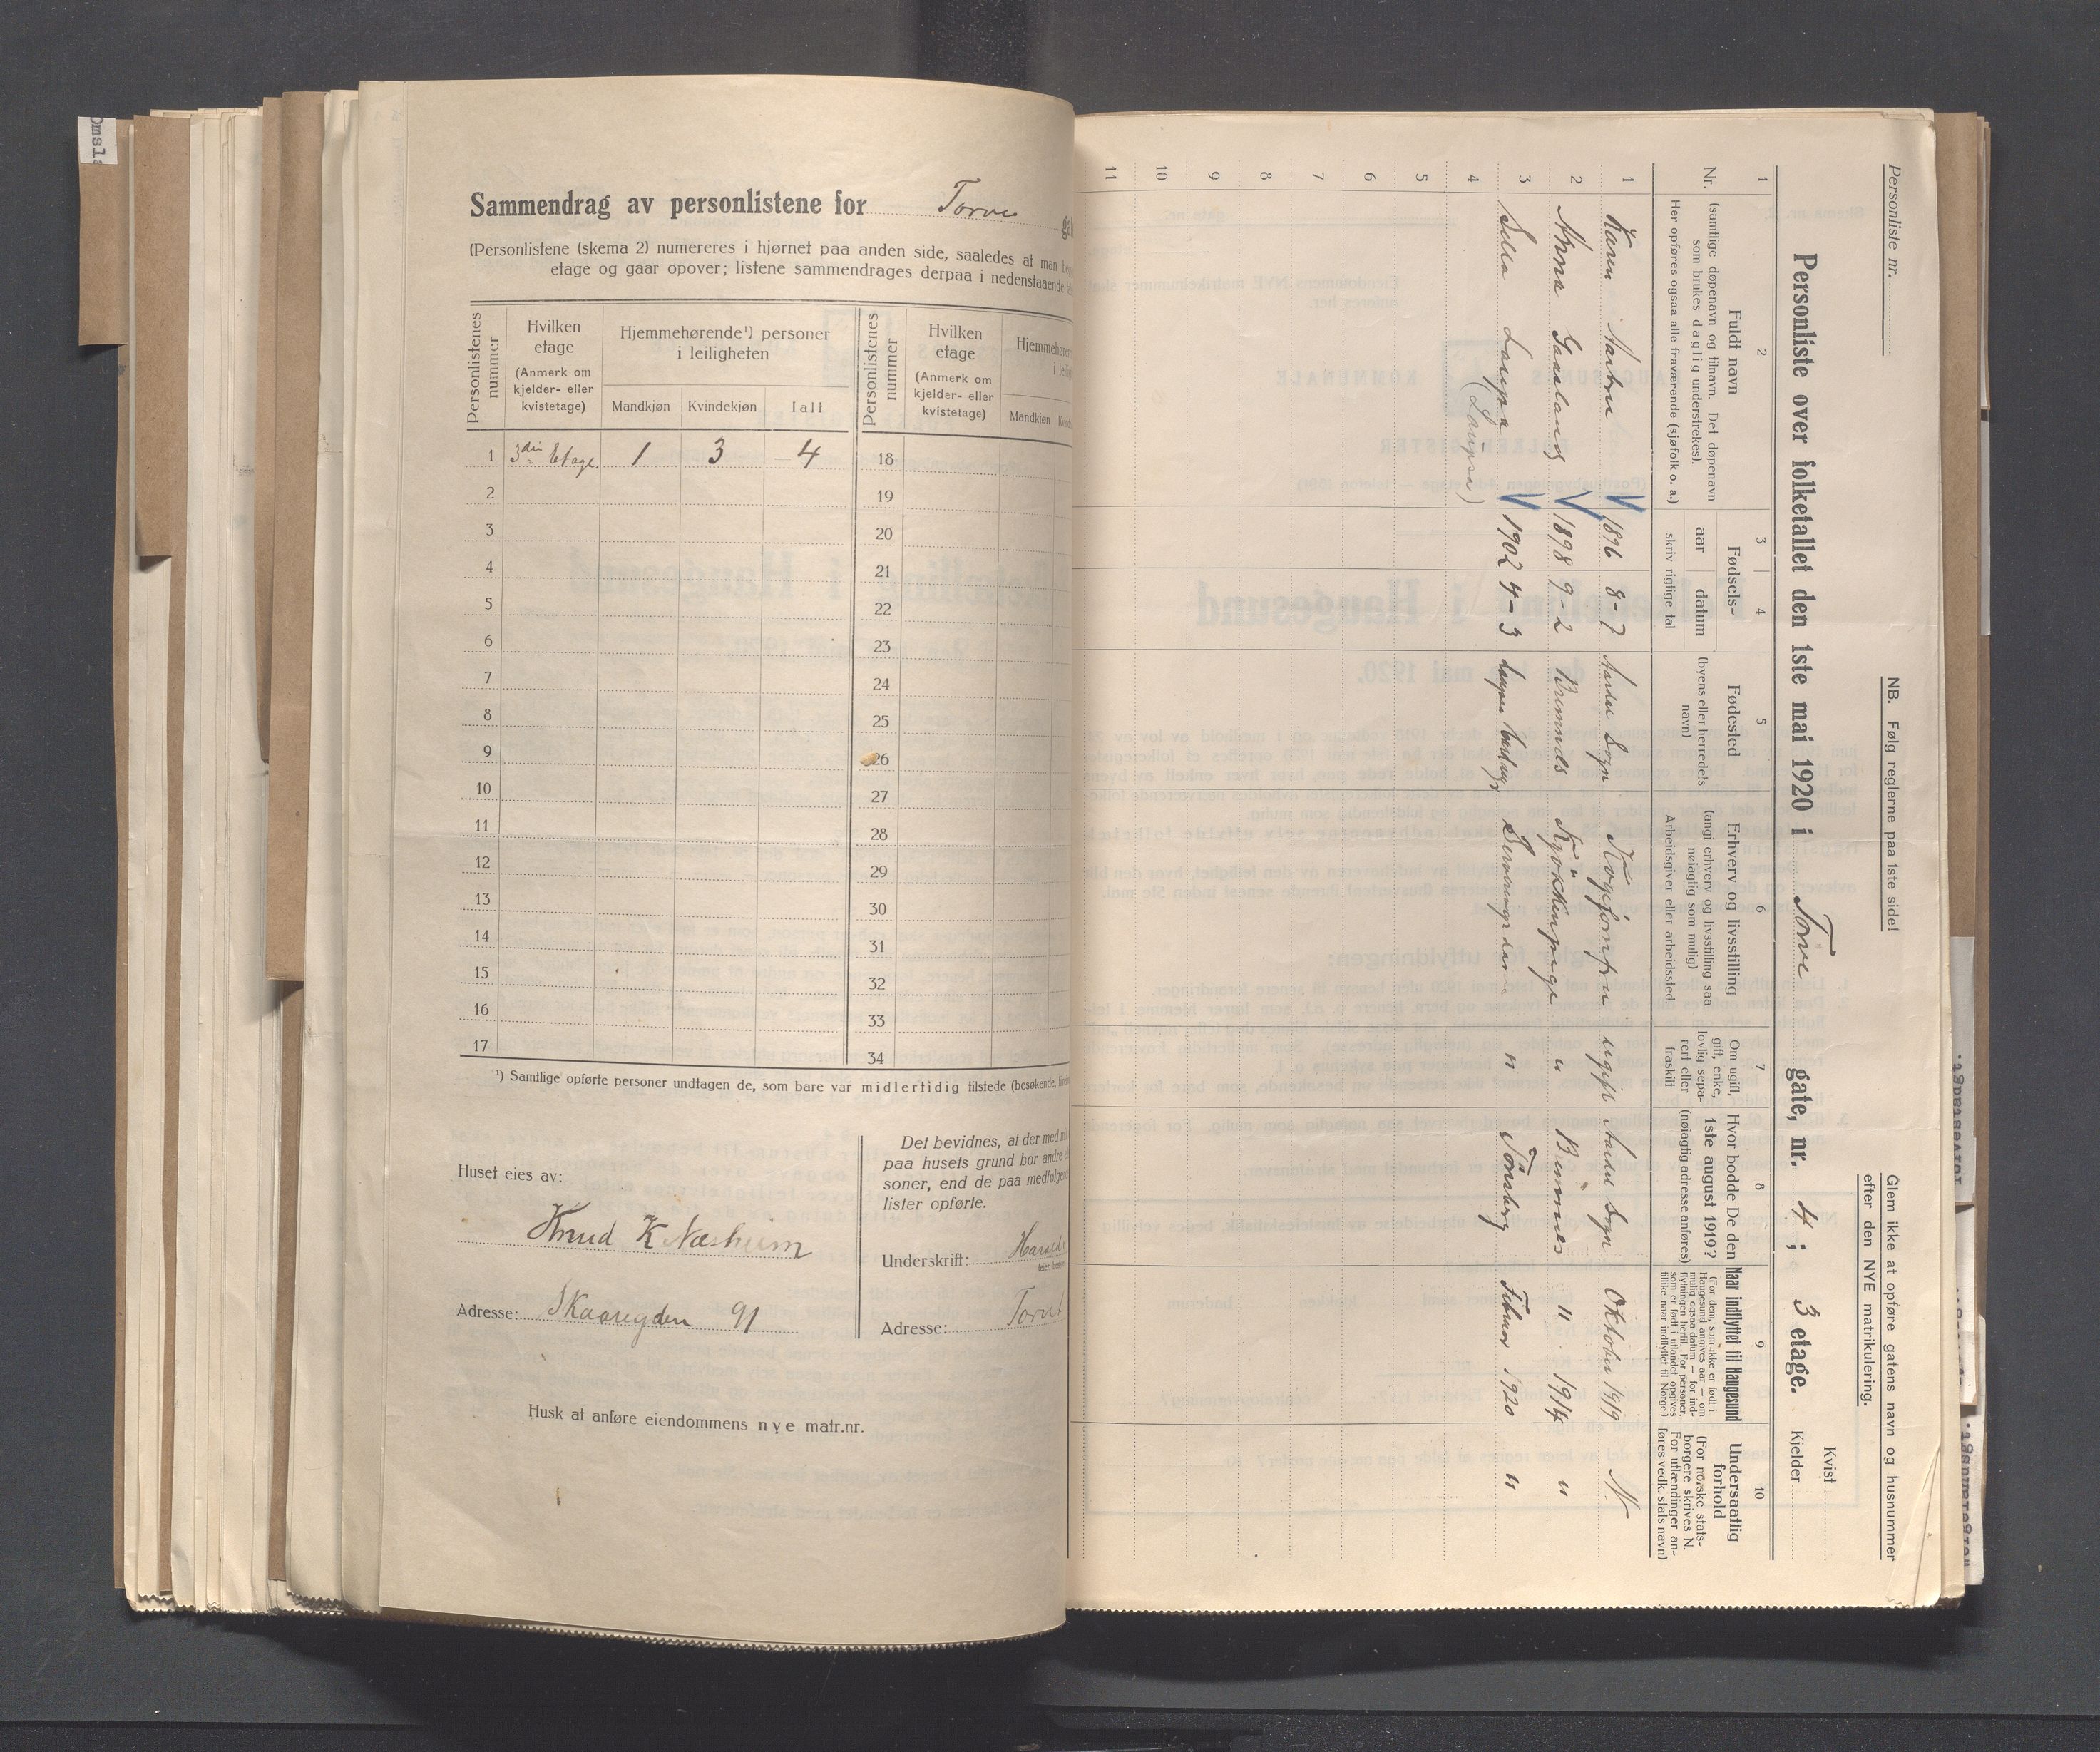 Omsla
Sammendrag av personlistene for Torve
(Personlistene (skema 2) numereres i hjørnet paa anden side, saaledes at man
etage og gaar opover; listene sammendrages derpaa i nedenstaaende
Personlistenes nummer
Hvilken etage
(Anmerk om kjelder- eller kvistetage)
Hjemmehørende¹) personer i leiligheten
Mandkjøn Kvindekjøn Ialt
Personlistenes nummer
Hvilken etage
(Anmerk om kjelder- eller kvistetage)
Mandkjøn
1 3die Etage. 1 3 4 18
2 19
3 20
4 21
5 22
6 23
7 24
8 25
9 26
10 27
11 28
12 29
13 30
14 31
15 32
16 33
17 34
¹) Samtlige opførte personer undtagen de, som bare var midlertidig tilstede (besøkende,
Huset eies av:
Knud K Næsheim
Adresse: Skaareyden 91
Det bevidnes, at der med
paa husets grund bor andre
soner, end de paa medfølgende
lister opførte.
Underskrift: Harald
Adresse: Torvet
Husk at anføre eiendommens nye matr.nr.
Personliste nr.
NB. Følg reglerne paa 1ste side!
Glem ikke at opføre gatens navn og husnummer
efter den NYE matrikulering.
Personliste over folketallet den 1ste mai 1920 i Torve gate, nr. 4; 3 etage.
Kvist
Kjelder
1 2 3 4 5 6 7 8 9 10
Nr.
Fuldt navn
(samtlige døpenavn og tilnavn. Det døpenavn
som brukes daglig understrekes).
Her opføres ogsaa alle fraværende (sjøfolk o. a.)
Fødsels-
aar datum
skriv rigtige tal
Fødested
(byens eller herredets
navn)
Erhverv og livsstilling
(angi erhverv og livsstilling saa
nøiagtig som mulig)
Arbeidsgiver eller arbeidssted.
Om ugift,
gift, enke,
lovlig sepa-
rert eller
fraskilt
Hvor bodde De den
1ste august 1919?
(nøiagtig adresse anføres)
Naar indflyttet til Haugesund
(For dem, som ikke er født i
Haugesund angives aar — om
mulig ogsaa datum — for ind-
flytningen hertil. For personer,
som er født i utlandet opgives
tillike naar indflyttet til Norge.)
Undersaatlig
forhold
(For norske stats-
borgere skrives N.
For utlændinger an-
føres vedk. stats navn)
1 Karen 1896 8-7 Sogn Kogejomfru ugift Sogn Oktober 1919 N.
2 Anna Gaasland 1898 9-2 Bremnes Kjøkkenpige " Bremnes " 1914 "
3 1902 4-3 " Tønsberg Februar 1920 "
4
5
6
7
8
9
10
11